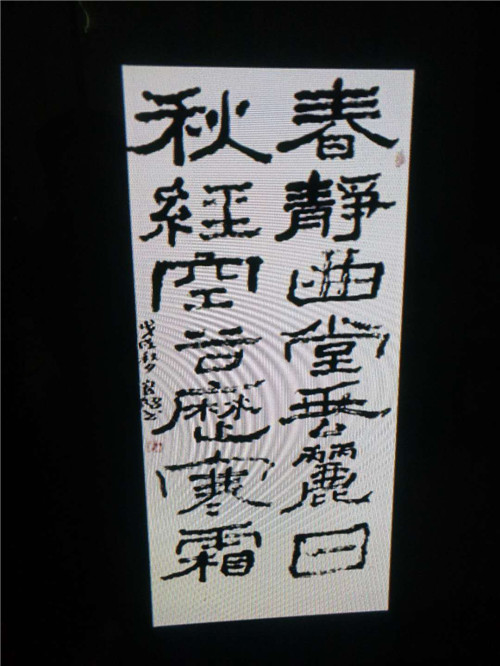 春靜曲堂垂麗日
秋經空谷歷寒霜
戊戌秋夕